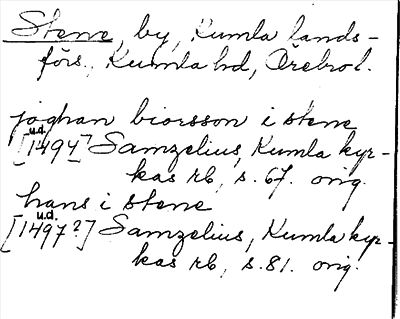 Stene, by, Kumla lands-
förs., Kumla hd, Örebro l.
joghan biorsson i stene
u.d.
[1494] Samzelius, Kumla kyr-
kas rb, s. 67. orig.
hans i stene
u.d.
[1497?] Samzelius, Kumla kyr-
kas rb, s. 81. orig.